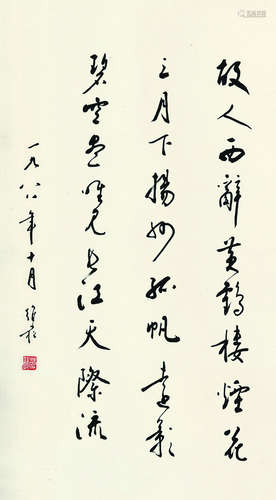 故人西辭黄鶴樓煙花
三月下揚州孤帆遠影
碧空盡唯見長江天際流
一九八八年十月